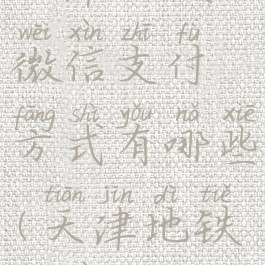 wēi xìn zhī fù
微信支付
fāng shì yǒu nǎ xiē
方式有哪些
tiān jīn dì tiě
(天津地铁